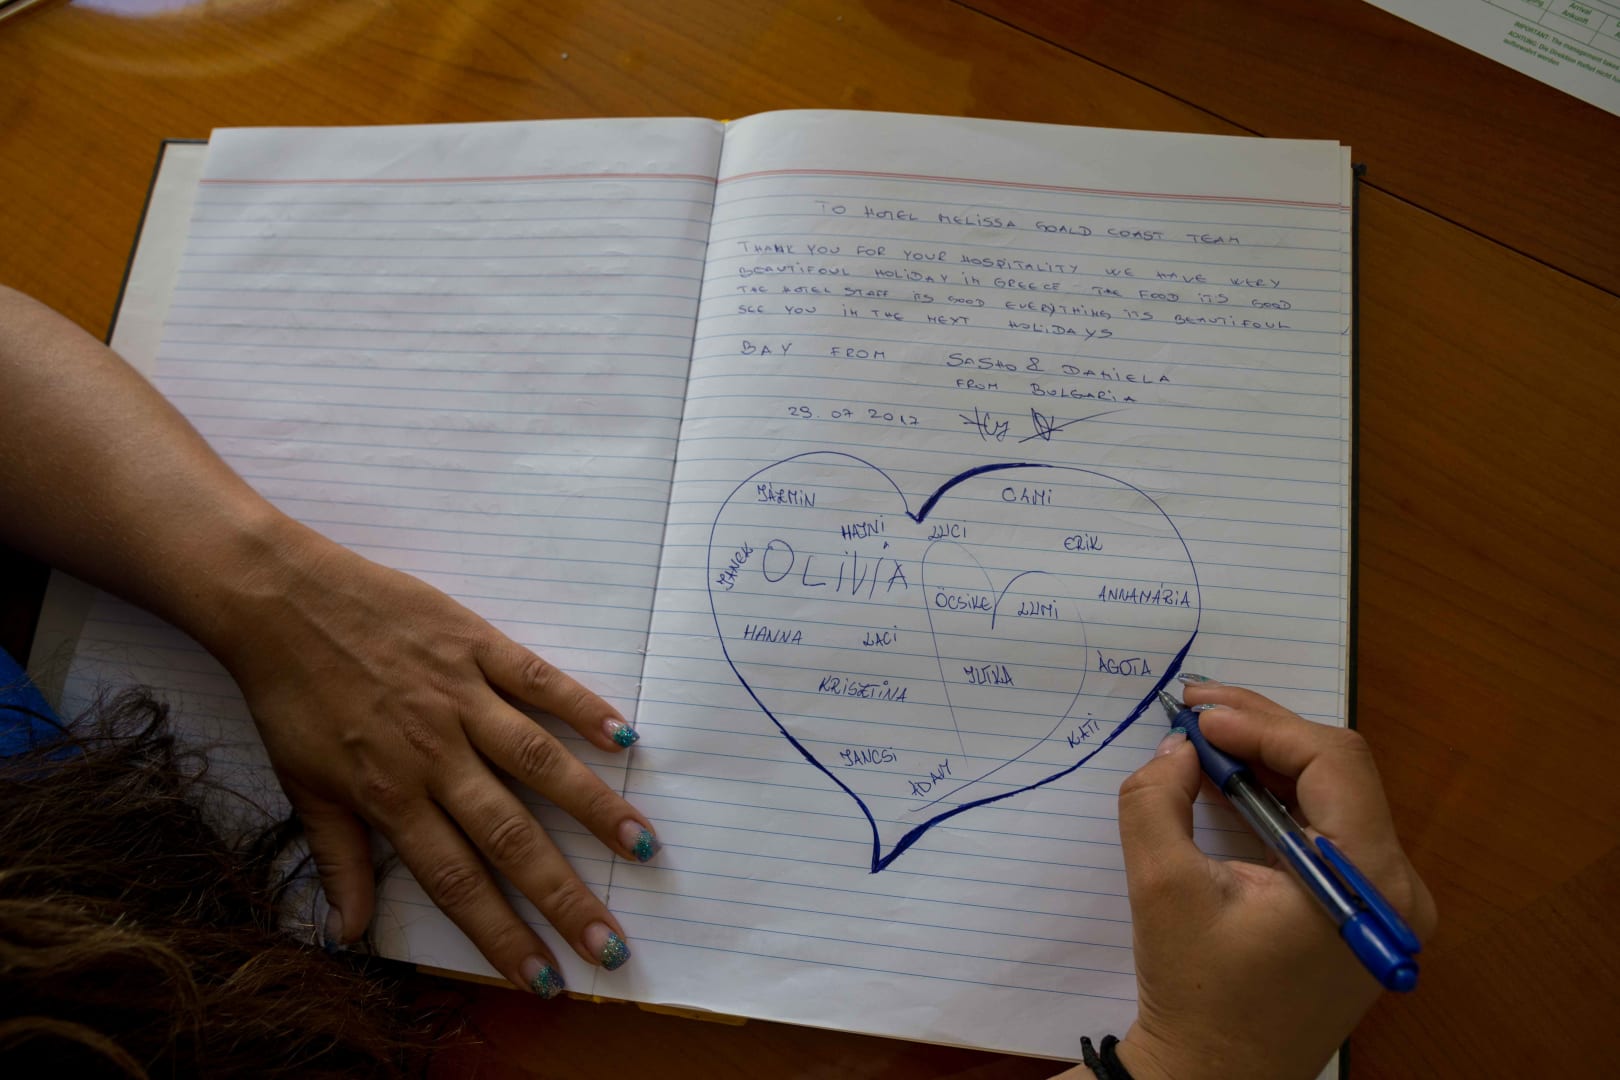 Arrival
Ankunft
IMPORTANT: The management takes
ACHTUNG: Die Direktion Haftet nicht
aufbewahrt werden
TO HOTEL MELISSA GOALD COAST TEAM
THANK YOU FOR YOUR HOSPITALITY WE HAVE WERY
BEAUTIFOUL HOLIDAY IN GREECE THE FOOD ITS GOOD
THE HOTEL STAFF ITS GOOD EVERYTHING ITS BEAUTIFOUL
SEE YOU IN THE NEXT HOLIDAYS
BAY FROM SASHO & DANIELA
FROM BULGARIA
29.07 2017
JÁZMIN
OLMI
HAJNI
LUCI
ERIK
JANEK
OLÍVIA
ÖCSIKE
LUMI
ANNAMÁRIA
HANNA
LACI
JUTKA
ÁGOTA
KRISZTINA
KATI
JANCSI
ÁDÁM